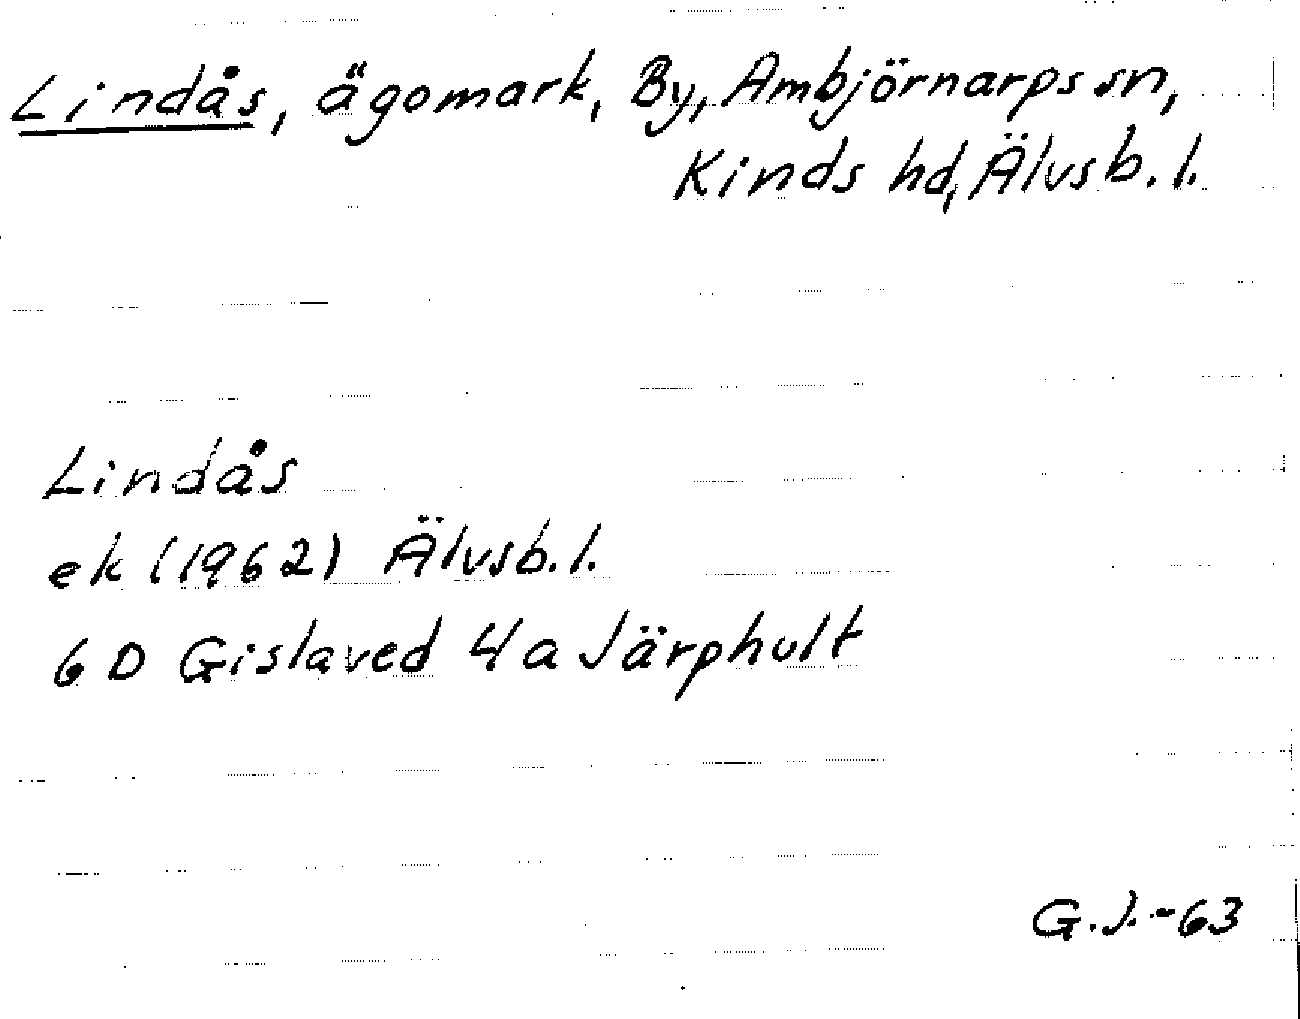 Lindås, ägomark, By, Ambjörnarps sn,
Kinds hd, Älvsb. l.
Lindås
ek (1962) Älvsb. l.
6 D Gislaved 4 a Järphult
G.J.-63